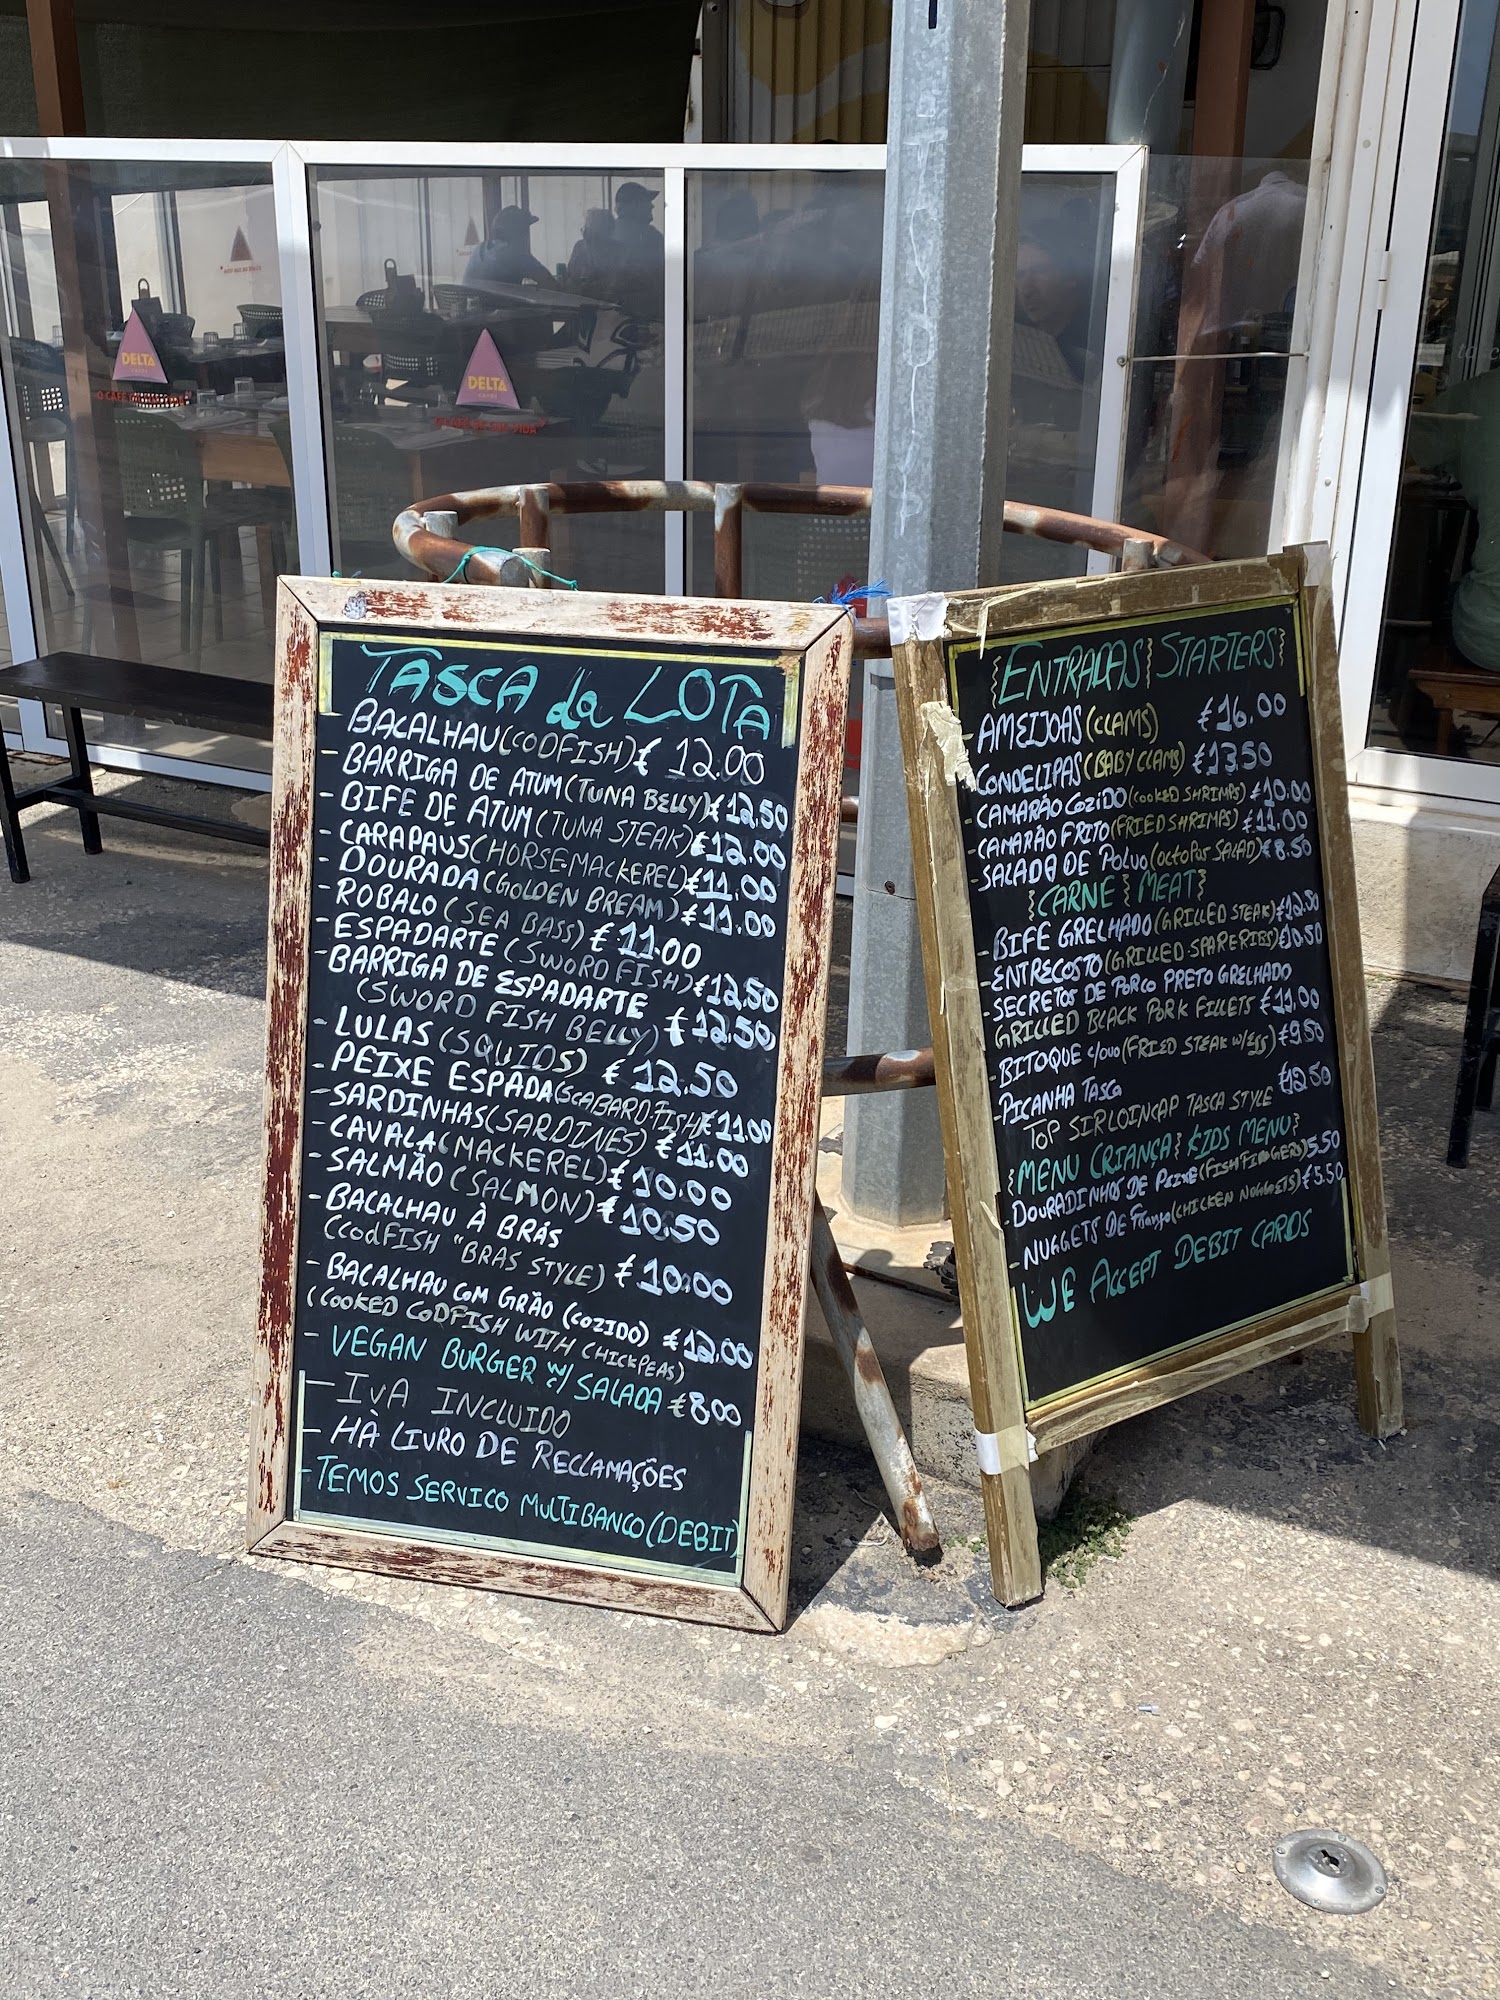 DELTA
CAFÉS
DELTA
CAFÉS
TASCA da LOTA
- BACALHAU (CODFISH) € 12.00
- BARRIGA DE ATUM (TUNA BELLY) € 12.50
- BIFE DE ATUM (TUNA STEAK) € 12.00
- CARAPAUS (HORSE-MACKEREL) € 11.00
- DOURADA (GOLDEN BREAM) € 11.00
- ROBALO (SEA BASS) € 11.00
- ESPADARTE (SWORD FISH) € 12.50
- BARRIGA DE ESPADARTE
(SWORD FISH BELLY) € 12.50
- LULAS (SQUIDS) € 12.50
- PEIXE ESPADA (SCABARD-FISH) € 11.00
- SARDINHAS (SARDINES) € 11.00
- CAVALA (MACKEREL) € 10.00
- SALMÃO (SALMON) € 10.50
- BACALHAU À BRÁS
(CODFISH "BRAS STYLE) € 10.00
- BACALHAU COM GRÃO (COZIDO) € 12.00
(COOKED CODFISH WITH CHICKPEAS)
- VEGAN BURGER W/ SALADA € 8.00
- IVA INCLUIDO
- HÀ LIVRO DE RECLAMAÇÕES
- TEMOS SERVICO MULTIBANCO (DEBIT)
{ENTRADAS} STARTERS}
- AMEIJOAS (CLAMS) € 16.00
- CONDELIPAS (BABY CLAMS) € 13.50
- CAMARÃO COZIDO (COOKED SHRIMPS) € 10.00
- CAMARÃO FRITO (FRIED SHRIMPS) € 11.00
- SALADA DE POLVO (OCTOPUS SALAD) € 8.50
{CARNE} MEAT}
- BIFE GRELHADO (GRILLED STEAK) € 12.50
- ENTRECOSTO (GRILLED SPARERIBS) € 10.50
- SECRETOS DE PORCO PRETO GRELHADO
GRILLED BLACK PORK FILLETS € 11.00
- BITOQUE c/OVO (FRIED STEAK W/EGG) € 9.50
- PICANHA TASCA
TOP SIRLOINCAP TASCA STYLE € 12.50
{MENU CRIANÇA} KIDS MENU}
- DOURADINHOS DE PEIXE (FISH FINGERS) 5.50
- NUGGETS DE Frango (CHICKEN NUGGETS) € 5.50
WE ACCEPT DEBIT CARDS